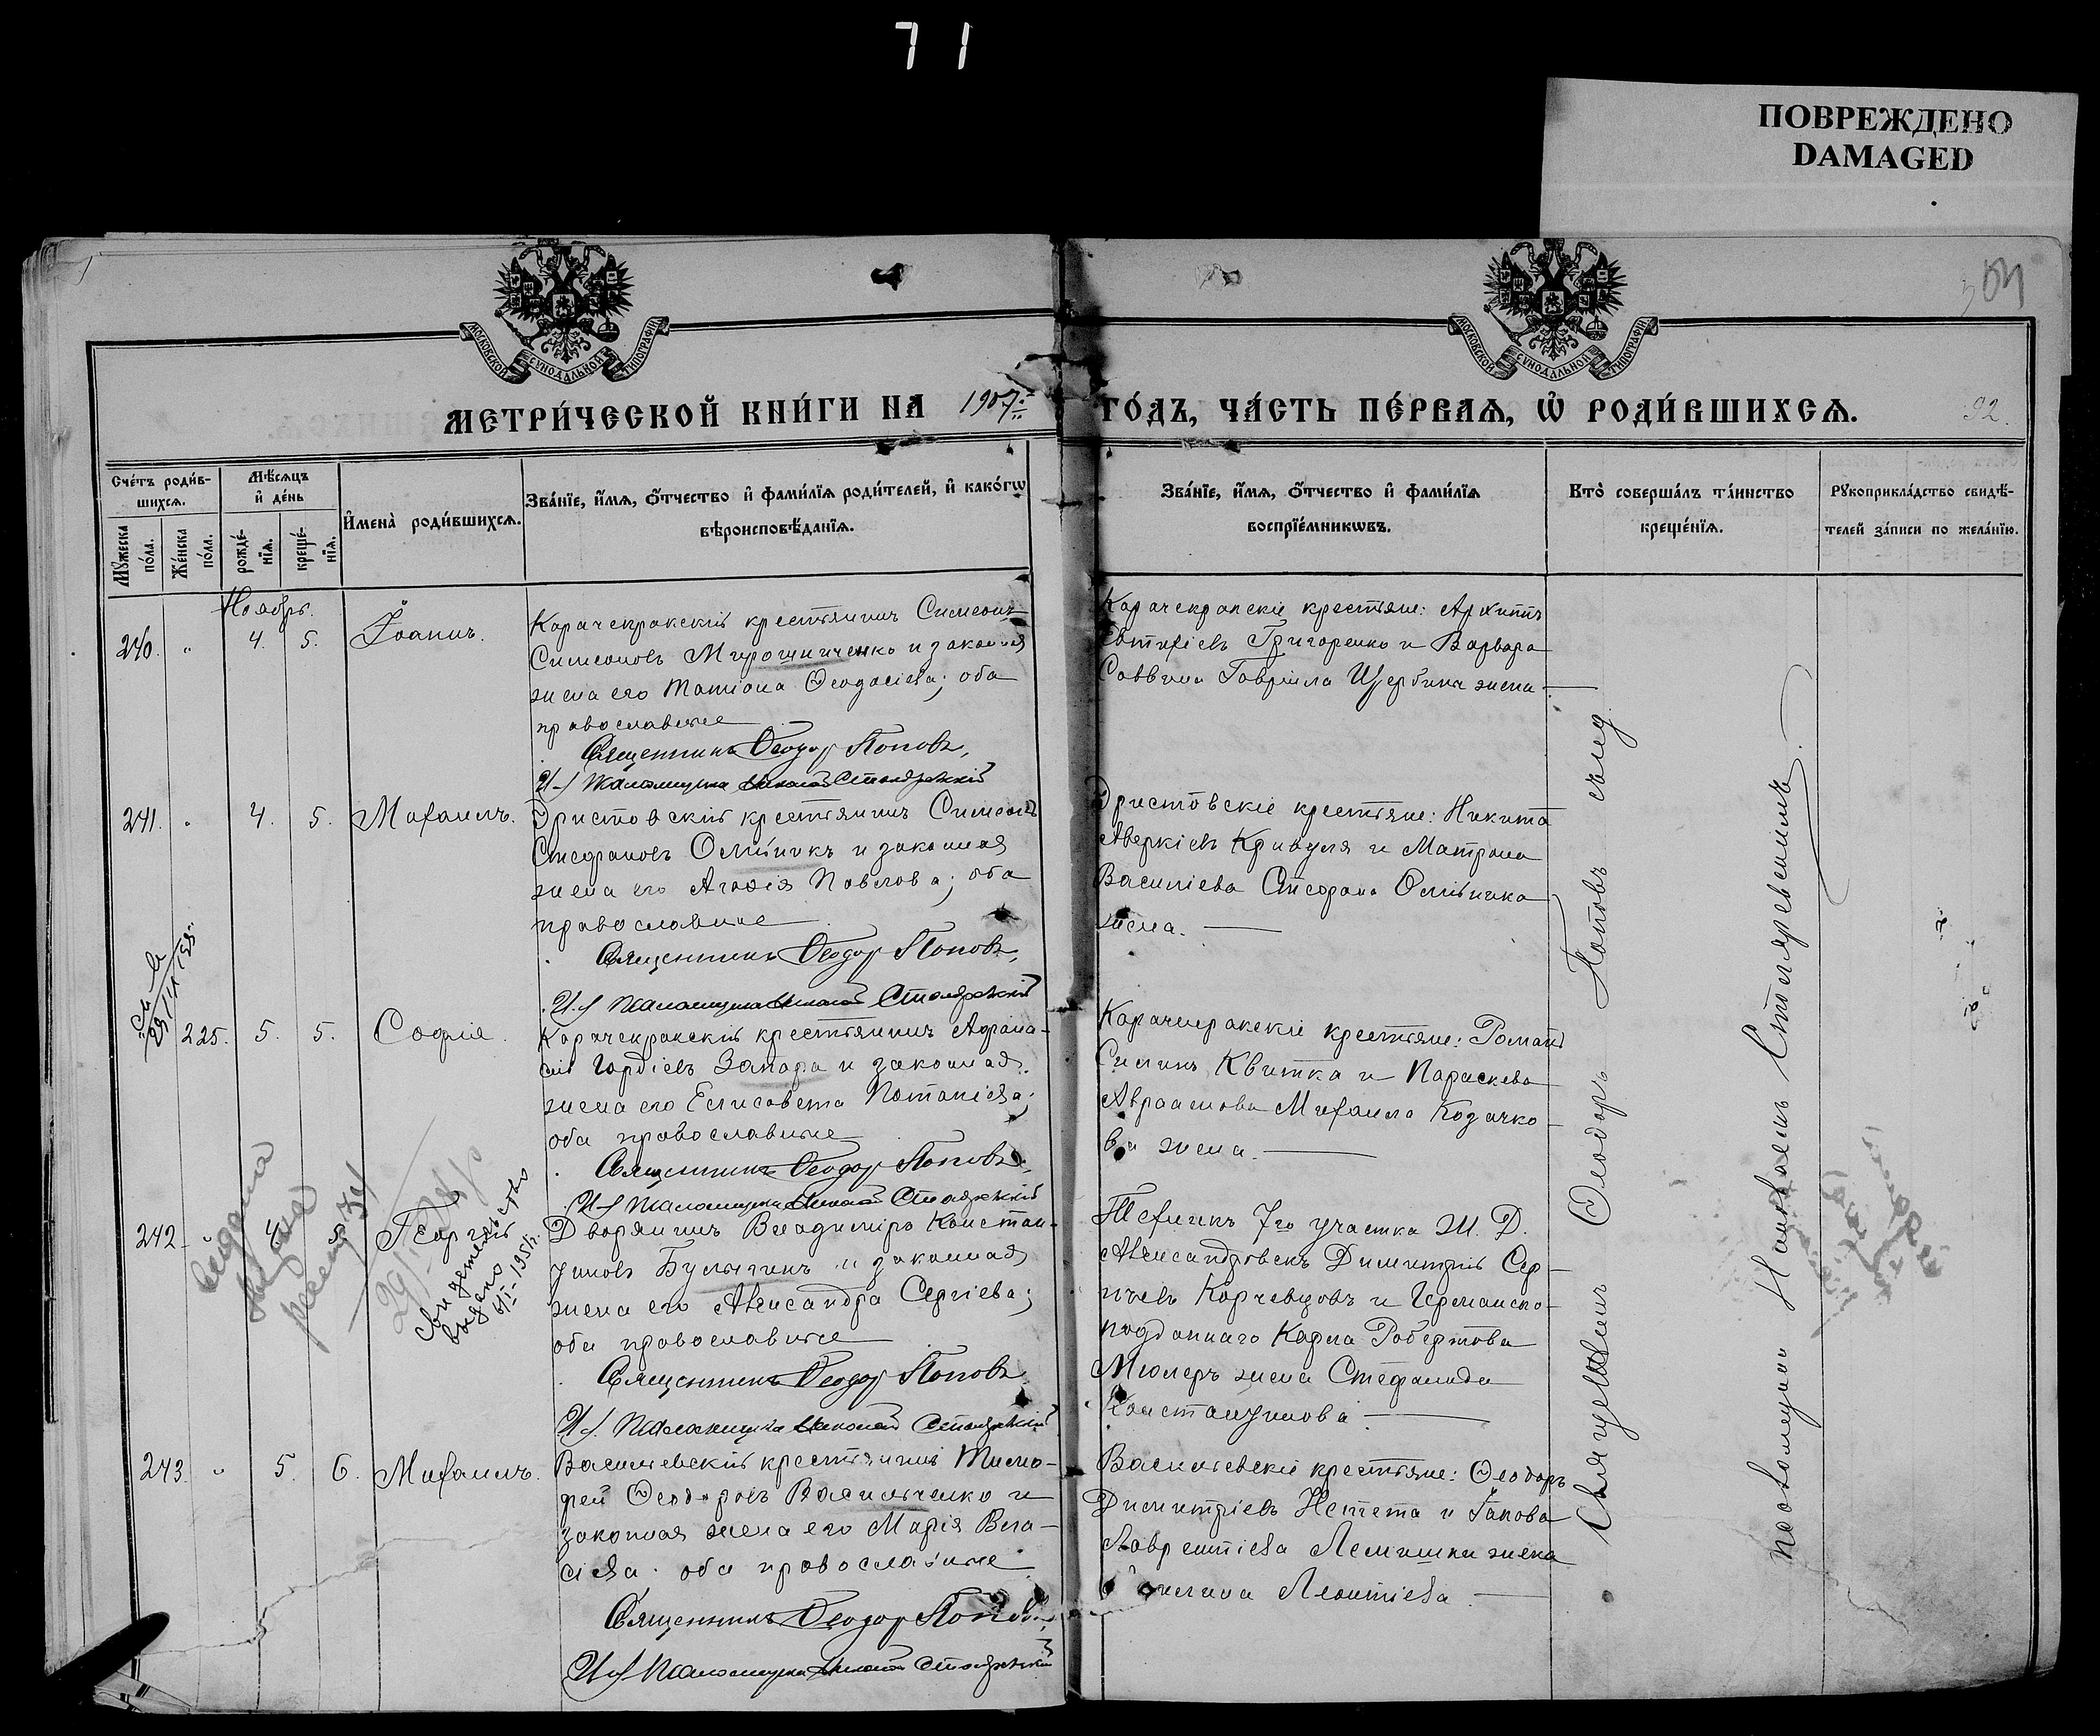 71
ПОВРЕЖДЕНО
DAMAGED
МОСКОВСКОЙ СѴНОДАЛЬНОЙ ТИПОГРАФІИ
МОСКОВСКОЙ СѴНОДАЛЬНОЙ ТИПОГРАФІИ
МЕТРИ́ЧЕСКОЙ КНИ́ГИ НА 1907 ГО́ДЪ, ЧА́СТЬ ПЕ́РВАѦ, Ѡ҆ РОДИ́ВШИХСѦ.
92.
Сче́тъ роди́в-
шихсѧ.
Мꙋжеска по́ла.
Же́нска по́ла.
Мѣ́сѧцъ
и҆ де́нь
рожде́-
нїѧ.
креще́-
нїѧ.
И҆мена̀ роди́вшихсѧ.
Зва́нїе, и҆́мѧ, ѻ҆́тчество и҆ фами́лїѧ роди́телей, и҆ како́гѡ
вѣроисповѣ́данїѧ.
Зва́нїе, и҆́мѧ, ѻ҆́тчество и҆ фами́лїѧ
воспрїе́мникѡвъ.
Кто̀ соверша́лъ та́инство
креще́нїѧ.
Рꙋкоприкла́дство свидѣ́-
телей за́писи по жела́нїю.
Ноябрь.
240. " 4. 5. Іоаннъ.
Карачекракскій крестьянинъ Симеонъ
Симеоновъ Мирошниченко и законная
жена его Татіана Ѳеодосіева; оба
православные
Священникъ Ѳеодор Поповъ,
И. д. Псаломщика Николай Столяревскій
Карачекракскіе крестьяне: Архиппъ
Евтихіевъ Григоренко и Варвара
Саввина Гавріила Щербины жена.
241. " 4. 5. Михаилъ.
Эристовскій крестьянинъ Симеонъ
Стефановъ Олійникъ и законная
жена его Агафія Павлова; оба
православные
Священникъ Ѳеодор Поповъ,
И. д. Псаломщика Николай Столяревскій
Эристовскіе крестьяне: Никита
Аверкіевъ Кривуля и Матрона
Василіева Стефана Олійника
жена.
225. 5. 5. Софія.
Карачекракскій крестьянинъ Афана-
сій Гордіевъ Запара и законная
жена его Елисавета Потапіева;
оба православные
Священникъ Ѳеодор Поповъ,
И. д. Псаломщика Николай Столяревскій
Карачекракскіе крестьяне: Романъ
Силинъ Квитка и Параскева
Авраамова Михаила Козачко-
ва жена.
242. " 4. 5. Георгій
свидетельство
выдано
Дворянинъ Владиміръ Констан-
тиновъ Булыгинъ и законная
жена его Александра Сергіева;
оба православные
Священникъ Ѳеодор Поповъ
И. д. Псаломщика Николай Столяревскій
Техникъ 7го участка Ж. Д.
Александровскъ Димитрій Сер-
гіевъ Корчевцовъ и Германско-
подданнаго Карла Робертова
Мюлеръ жена Стефанида
Константинова
243. " 5. 6. Михаилъ.
Васильевскій крестьянинъ Тимо-
фей Ѳеодоровъ Васильченко и
законная жена его Марія Вла-
сіева. оба православные
Священникъ Ѳеодор Поповъ,
И. д. Псаломщика Николай Столяревскій
Васильевскіе крестьяне: Ѳеодоръ
Димитріевъ Нетета и
Лаврентіева Лемишки жена
Леонтіева
Священникъ Ѳеодоръ Поповъ съ и. д.
псаломщика Николаемъ Столяревскимъ.